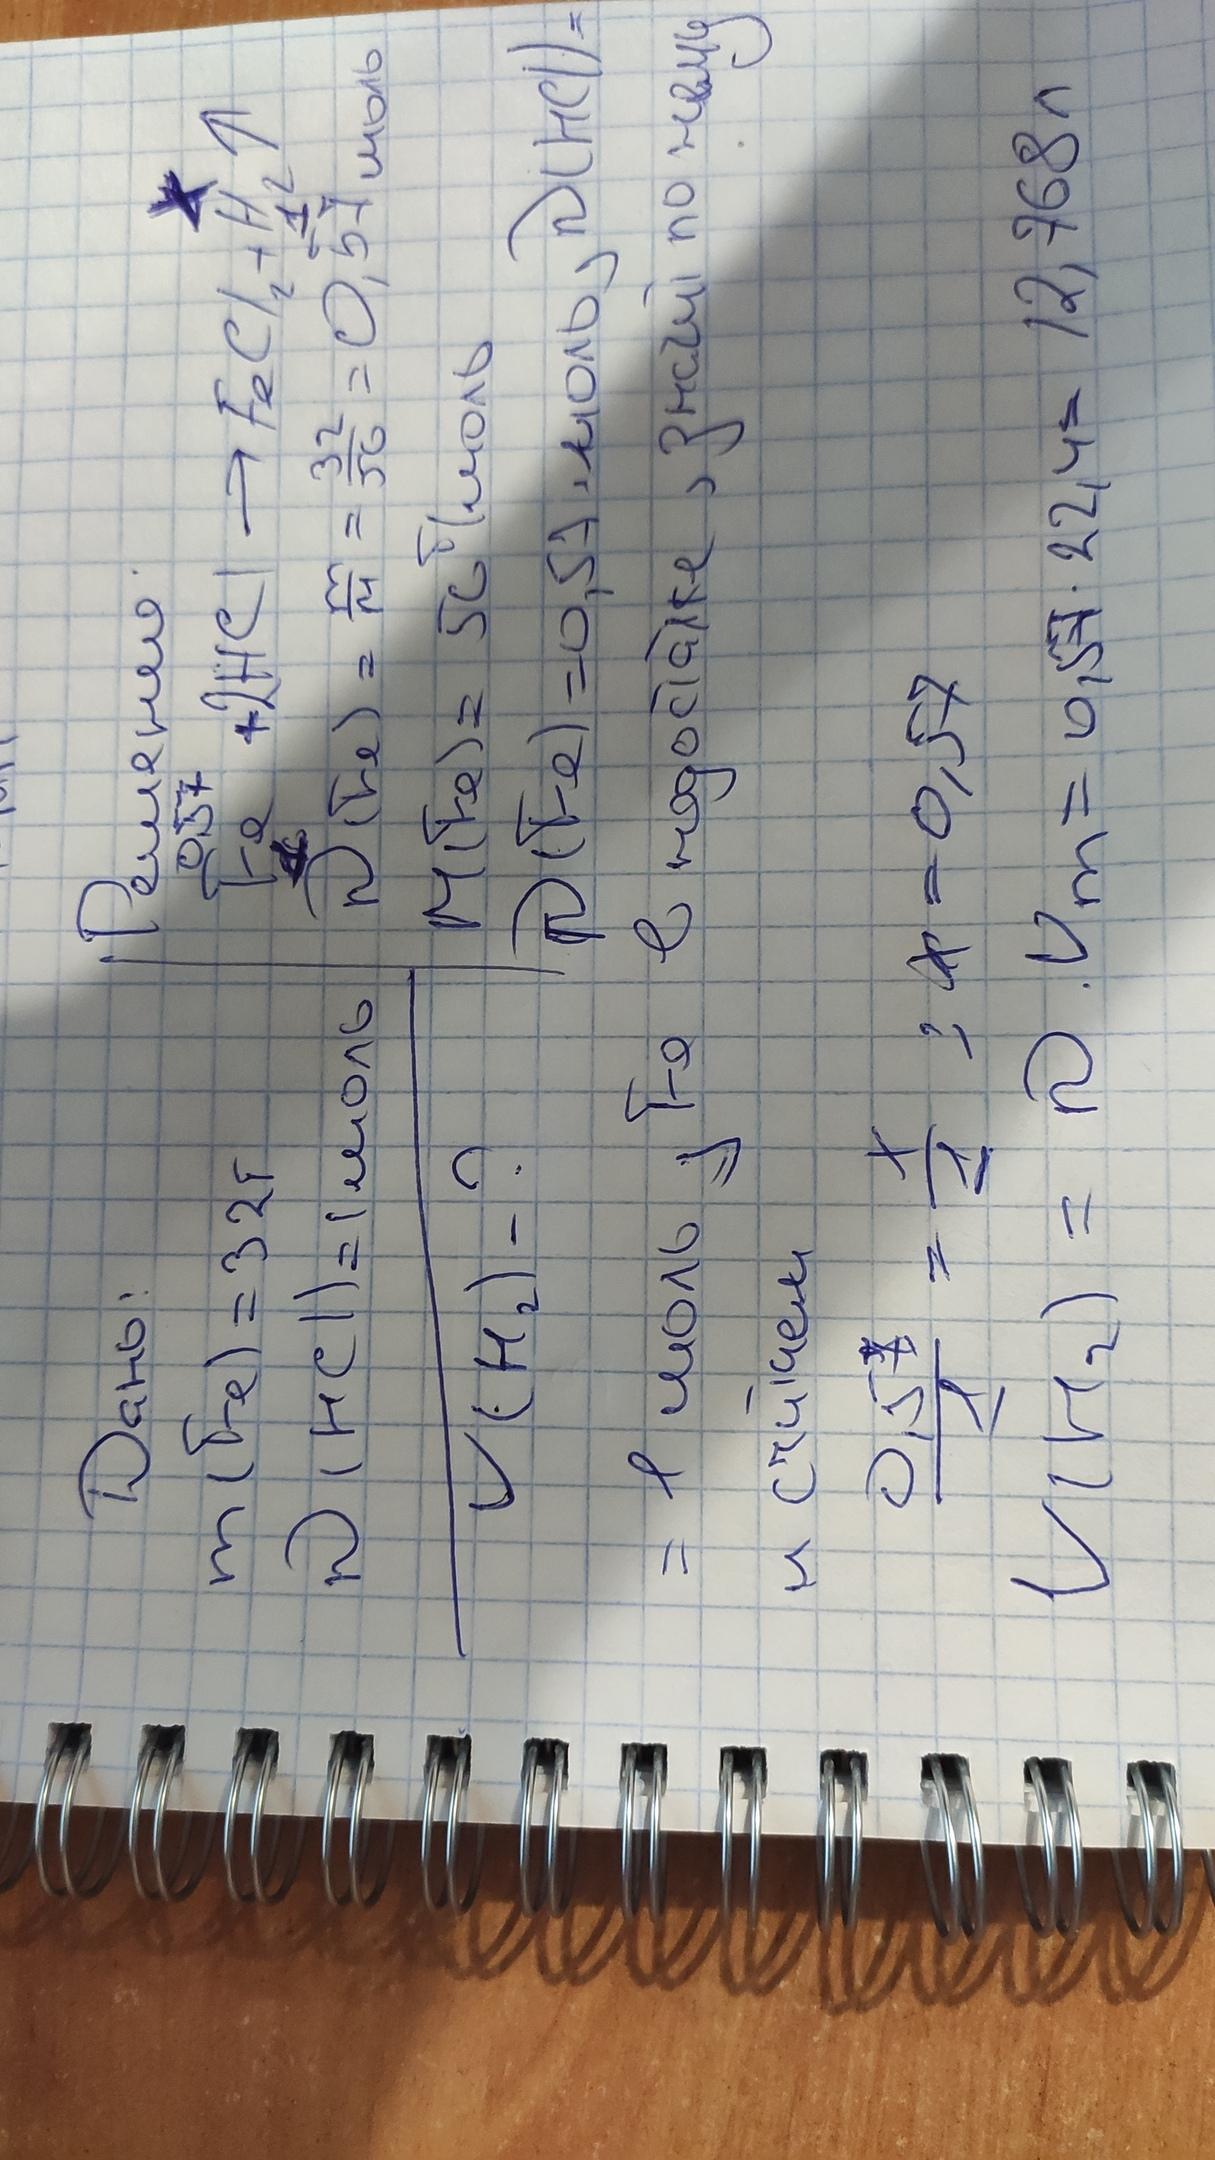 Дано:
m(Fe)=32г
n(HCl)=1моль
V(H₂)-?
Решение:
0,57 x
Fe +2HCl → FeCl₂+H₂↑
1
n(Fe) = m/M = 32/56 = 0,57 моль
M(Fe)= 56 г/моль
n(Fe)=0,57 моль, n(HCl)=
= 1 моль, => Fe в недостатке, значит по нему
и считаем
0,57/1 = x/1 ; x = 0,57
V(H₂) = n · Vm = 0,57 · 22,4= 12,768л